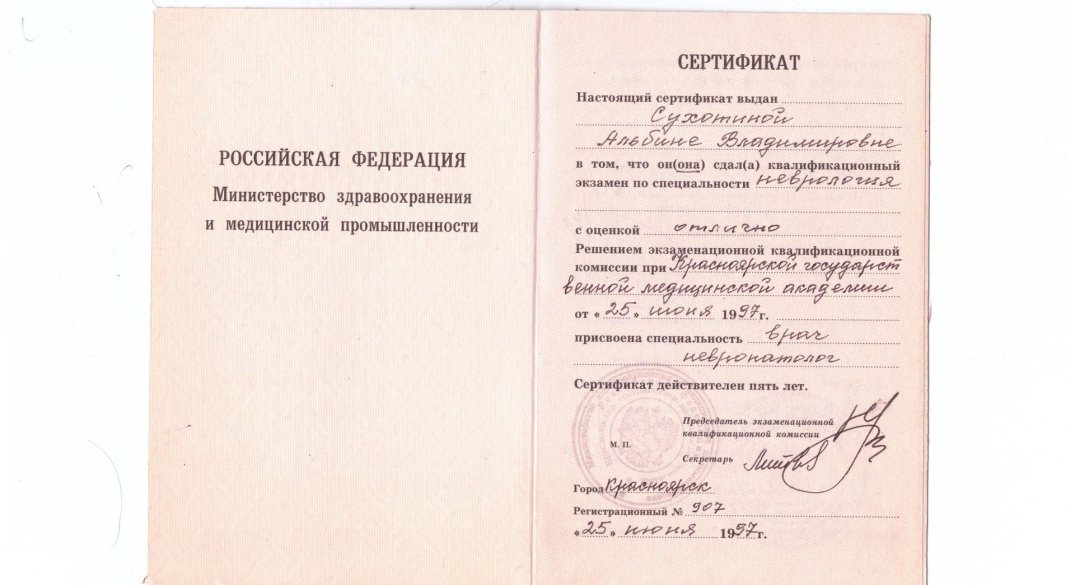 РОССИЙСКАЯ ФЕДЕРАЦИЯ
Министерство здравоохранения
и медицинской промышленности
СЕРТИФИКАТ
Настоящий сертификат выдан
Сухотиной
Альбине Владимировне
в том, что он(она) сдал(а) квалификационный
экзамен по специальности неврология
с оценкой отлично
Решением экзаменационной квалификационной
комиссии при Красноярской государст
венной медицинской академии
от «25» июня 1997г.
присвоена специальность врач
невропатолог
Сертификат действителен пять лет.
Председатель экзаменационной
квалификационной комиссии
М. П.
Секретарь
Город Красноярск
Регистрационный № 907
«25» июня 1997г.